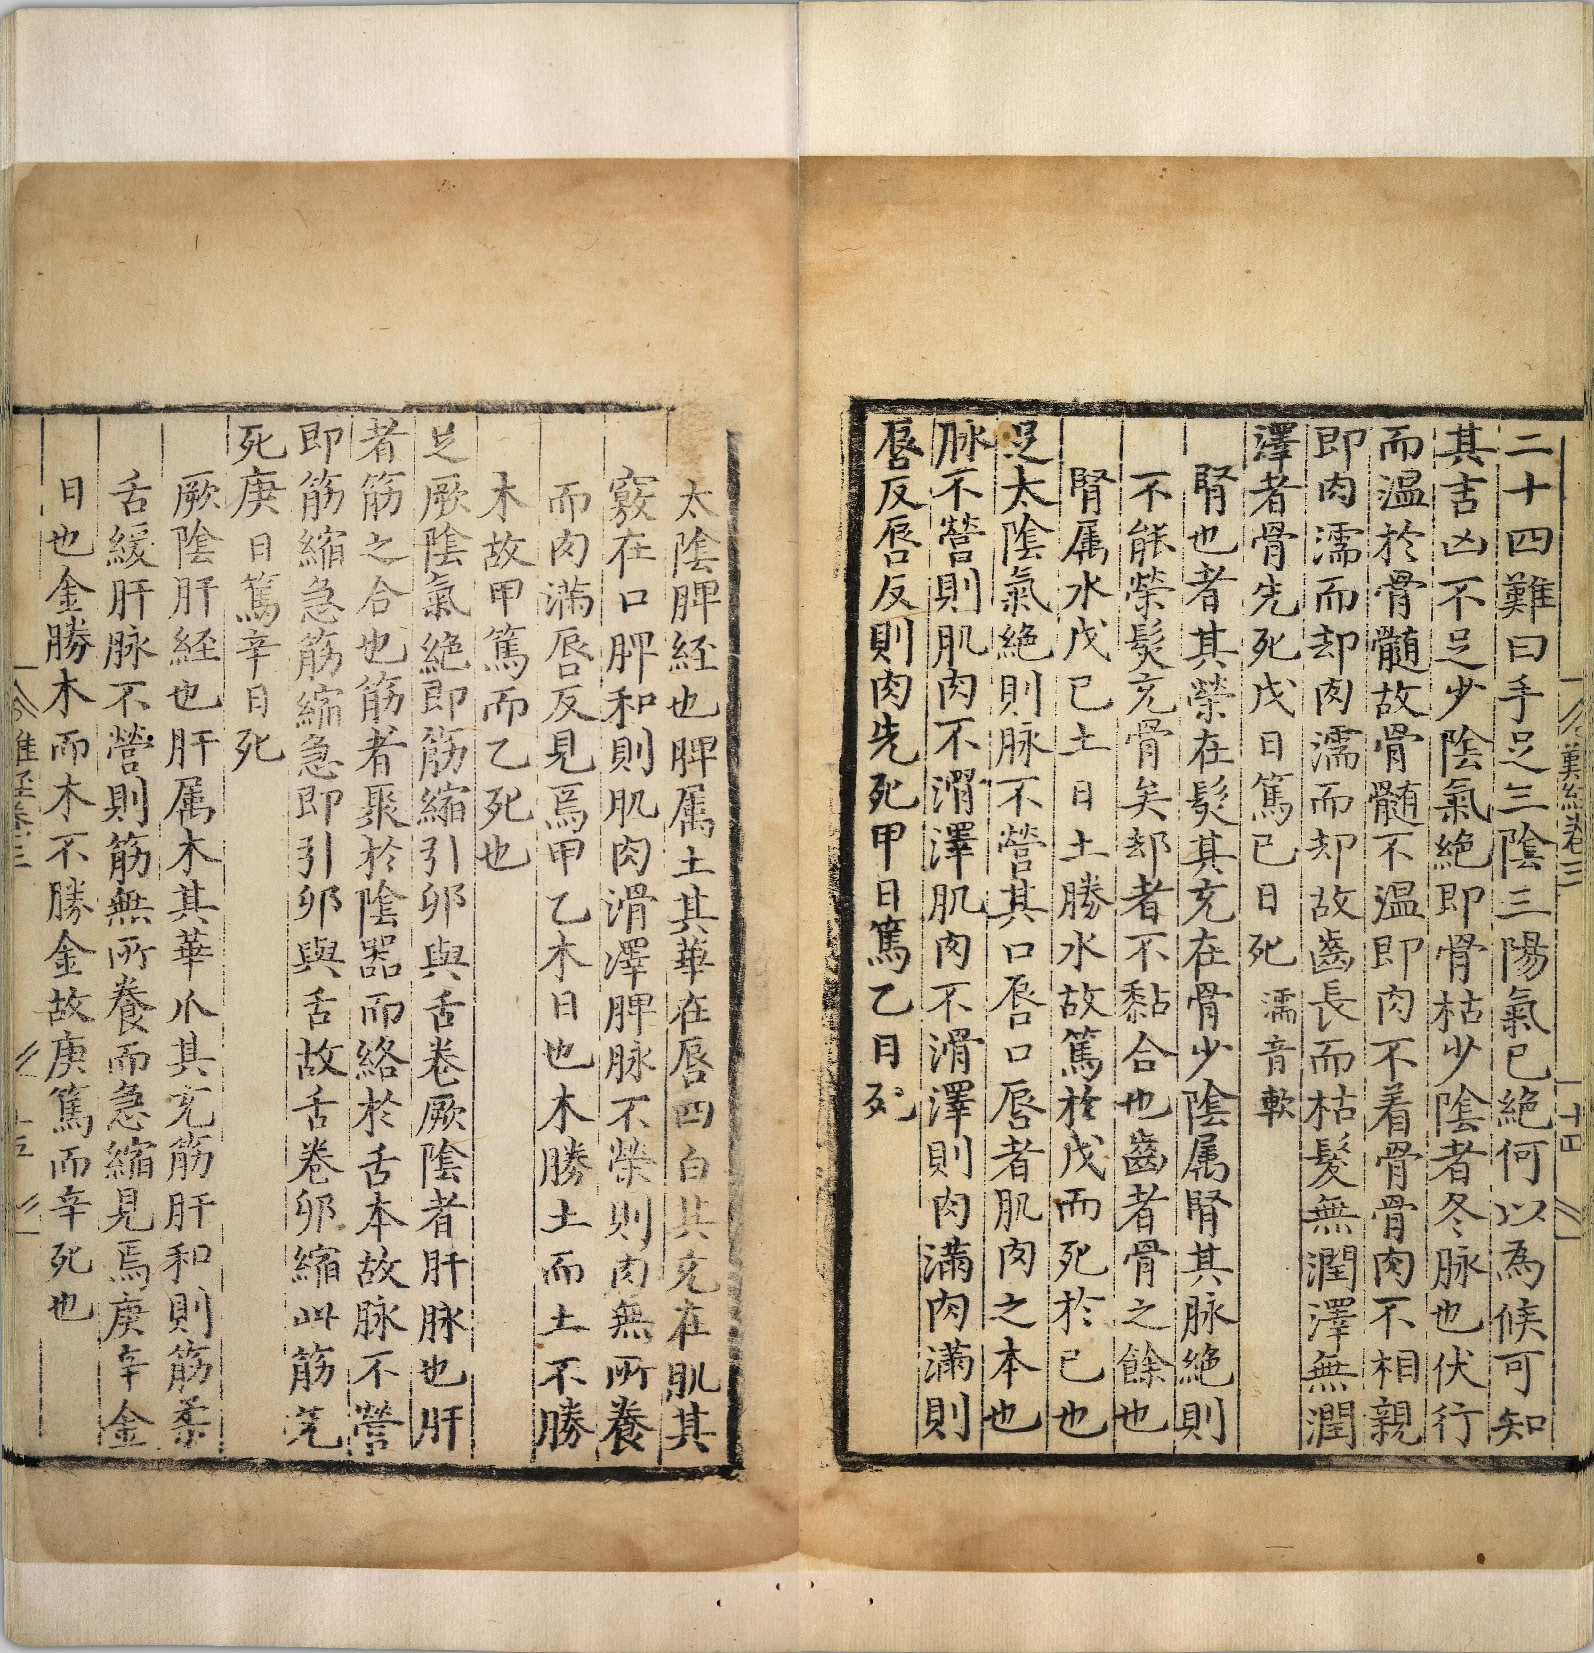 難經卷三
十四
二十四難曰手足三陰三陽氣已絶何以為候可知
其吉凶不足少陰氣絶即骨枯少陰者冬脉也伏行
而温於骨髓故骨髓不温即肉不着骨骨肉不相親
即肉濡而却肉濡而却故齒長而枯髮無潤澤無潤
澤者骨先死戊日篤已日死濡音軟
腎也者其榮在髮其充在骨少陰属腎其脉絶則
不能榮髮充骨矣却者不黏合也齒者骨之餘也
腎属水戊已土日土勝水故篤於戊而死於已也
足太陰氣絶則脉不營其口唇口唇者肌肉之本也
脉不營則肌肉不滑澤肌肉不滑澤則肉滿肉滿則
唇反唇反則肉先死甲日篤乙日死
太陰脾経也脾属土其華在唇四白其充在肌其
竅在口脾和則肌肉滑澤脾脉不榮則肉無所養
而肉滿唇反見焉甲乙木日也木勝土而土不勝
木故甲篤而乙死也
足厥陰氣絶即筋縮引卵與舌卷厥陰者肝脉也肝
者筋之合也筋者聚於陰器而絡於舌本故脉不營
即筋縮急筋縮急即引卵與舌故舌卷卵縮此筋先
死庚日篤辛日死
厥陰肝経也肝属木其華爪其充筋肝和則筋柔
舌緩肝脉不營則筋無所養而急縮見焉庚辛金
日也金勝木而木不勝金故庚篤而辛死也
難經卷三
十五